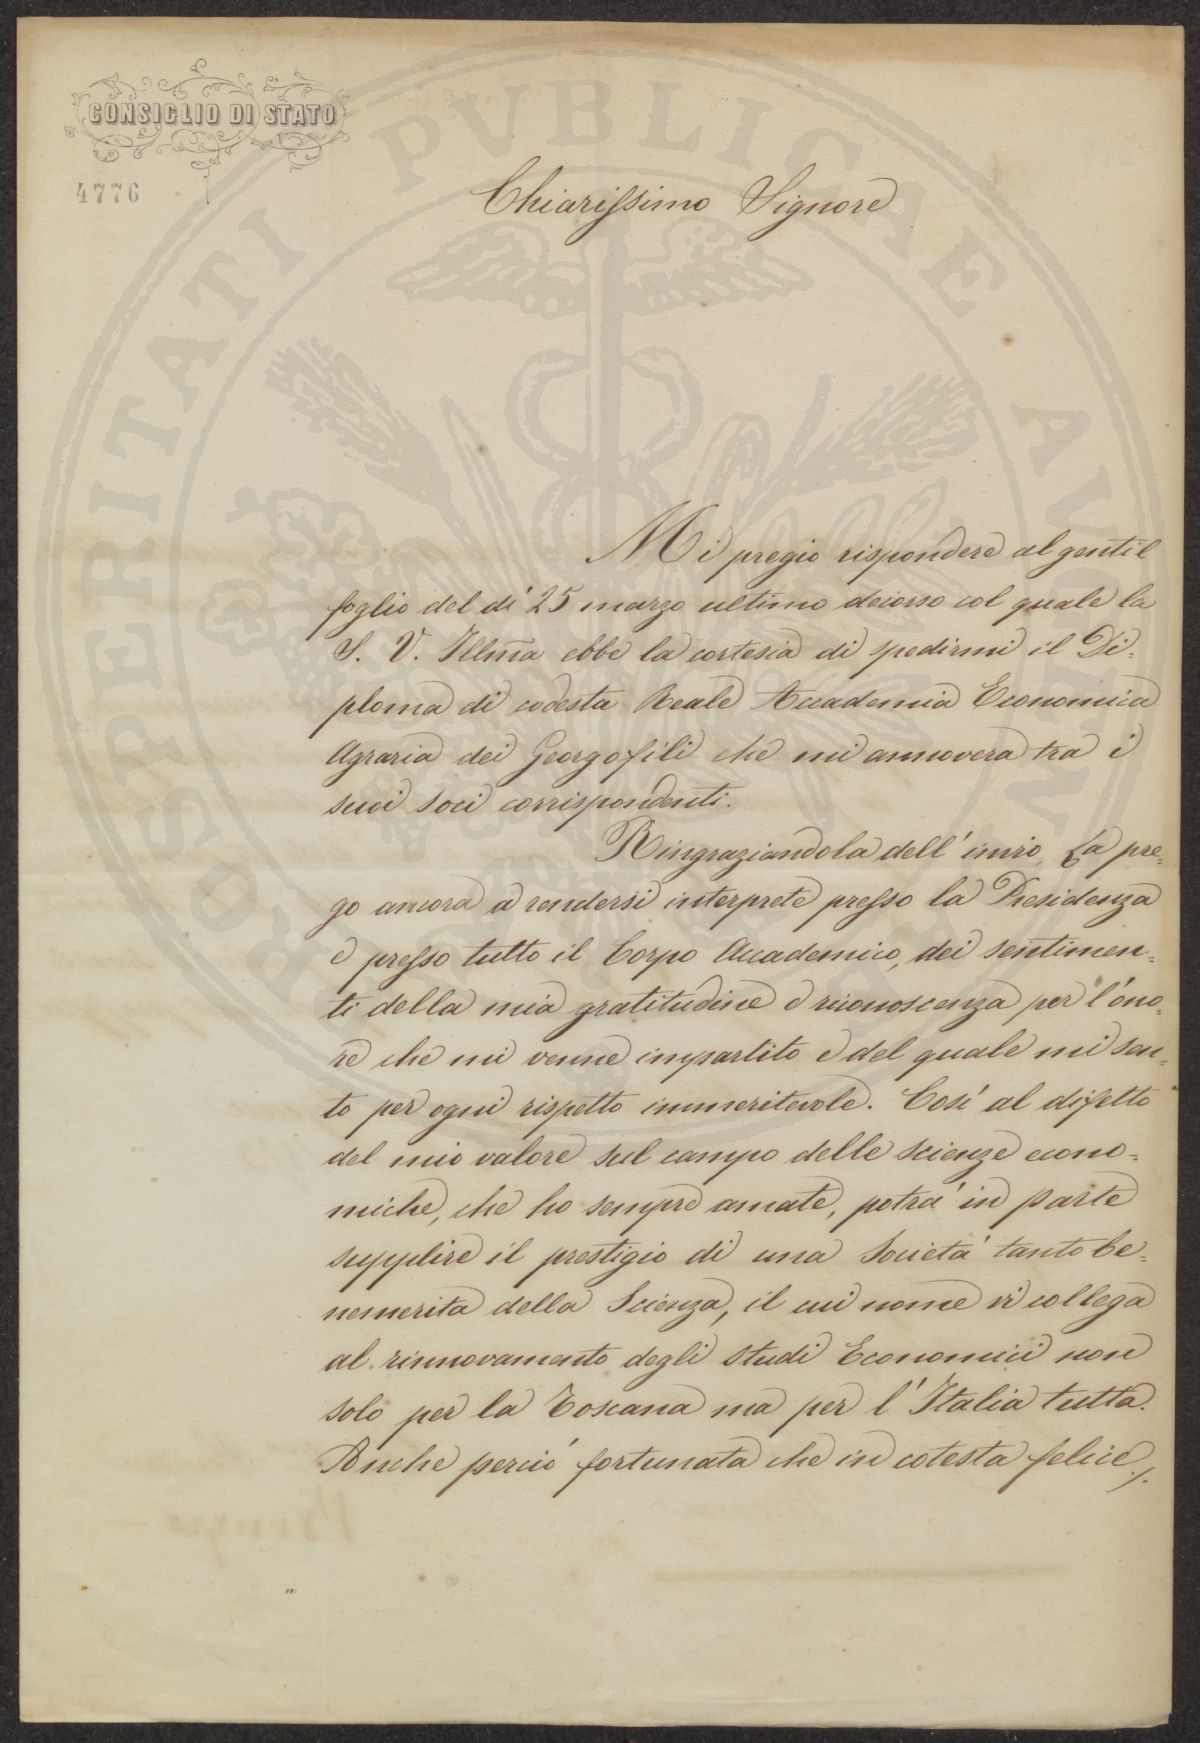 CONSIGLIO DI STATO
4776
PROSPERITATI PVBLICAE AVGENDAE
Chiarissimo Signore
Mi pregio rispondere al gentil
foglio del dì 25 marzo ultimo decorso col quale la
S. V. Illma ebbe la cortesia di spedirmi il Di-
ploma di codesta Reale Accademia Economica
Agraria dei Georgofili che mi annovera tra i
suoi soci corrispondenti.
Ringraziandola dell'invio, La pre-
go ancora a rendersi interprete presso la Presidenza
e presso tutto il Corpo Accademico, dei sentimen-
ti della mia gratitudine e riconoscenza per l'ono-
re che mi venne impartito e del quale mi sen-
to per ogni rispetto immeritevole. Così al difetto
del mio valore sul campo delle scienze econo-
miche, che ho sempre amate, potrà in parte
supplire il prestigio di una Società tanto be-
nemerita della Scienza, il cui nome vi collega
al rinnovamento degli studi Economici non
solo per la Toscana ma per l'Italia tutta.
Anche perciò fortunata che in cotesta felice ./.